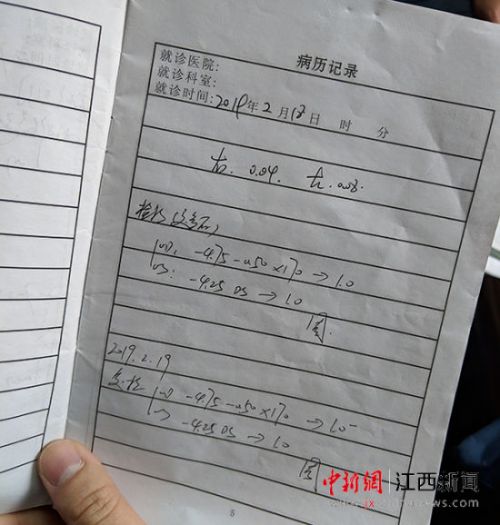 病历记录
就诊医院:
就诊科室:
就诊时间: 2019年2月18日 时 分
右: 0.04. 左: 0.08.
OD: -4.75 -0.50×170 → 1.0
OS: -4.25 DS → 1.0
2019.2.19
复检 OD -4.75 -0.50×170 → 1.0
OS -4.25 DS → 1.0
5
中新網 江西新闻